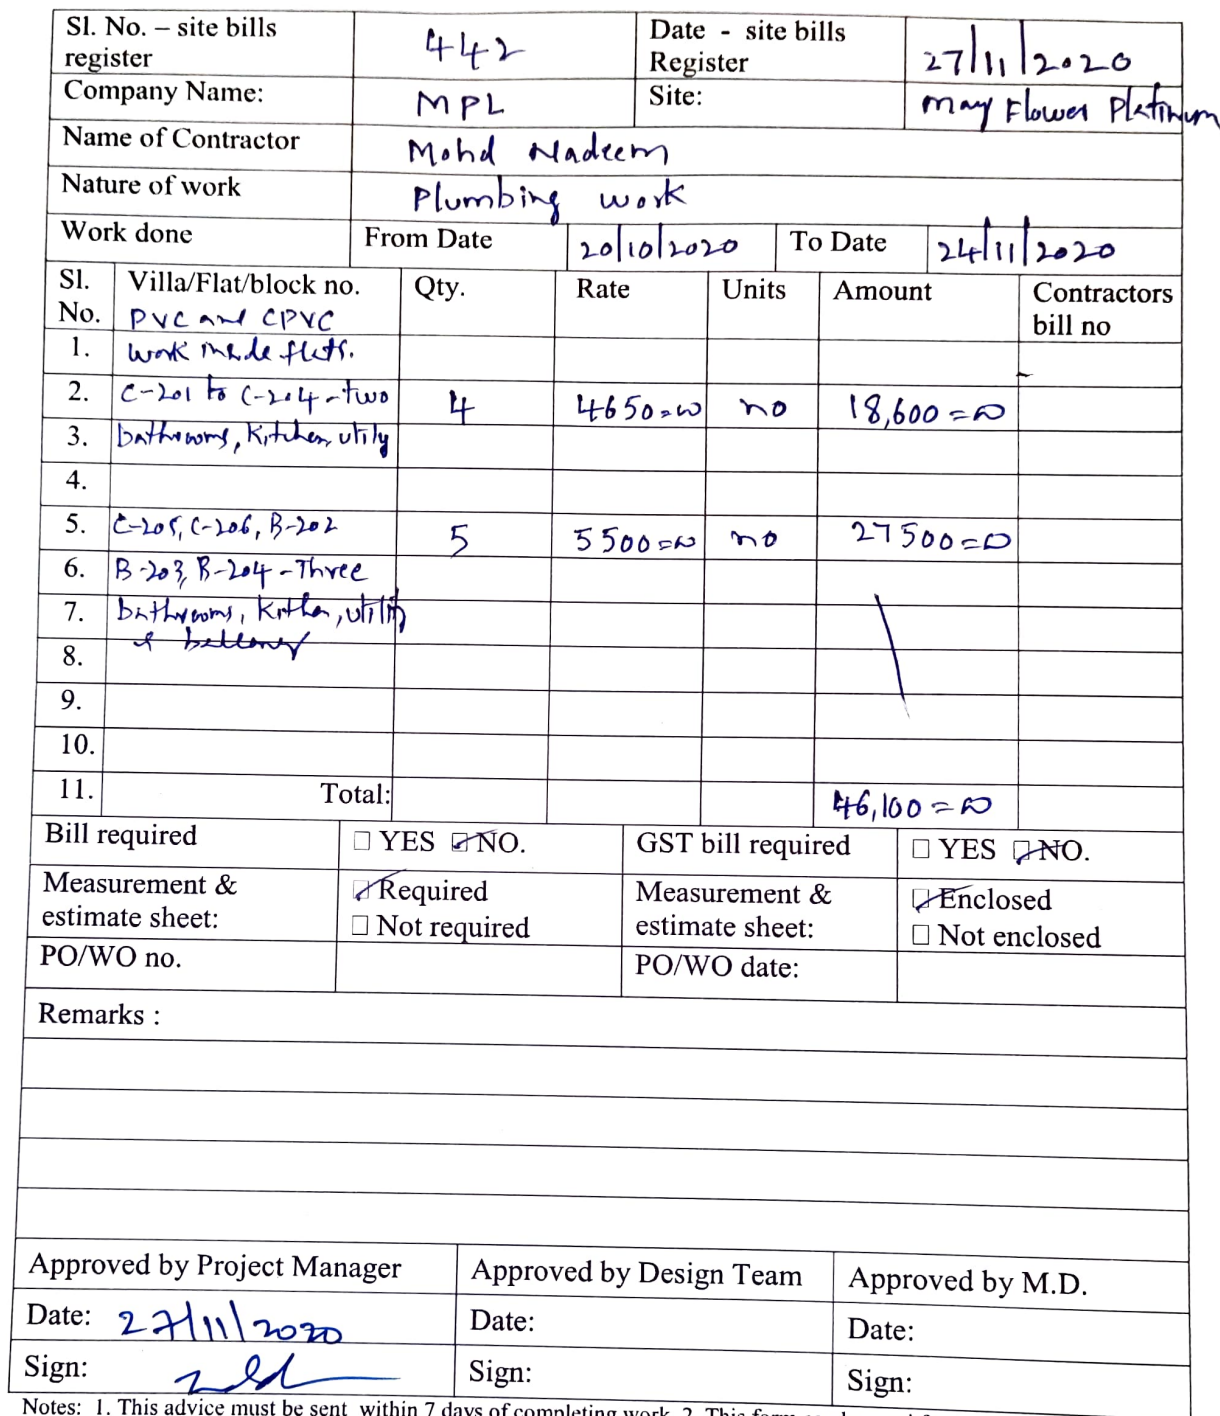 Sl. No. – site bills register 442 Date - site bills Register 27/11/2020
Company Name: MPL Site: May Flower Platinum
Name of Contractor Mohd Nadeem
Nature of work Plumbing work
Work done From Date 20/10/2020 To Date 24/11/2020
Sl. No. Villa/Flat/block no. Qty. Rate Units Amount Contractors bill no
PVC and CPVC
1. work inside flats.
2. C-201 to C-204 - two 4 4650=00 no 18,600=00
3. bathrooms, Kitchen, utily
4.
5. C-205, C-206, B-202 5 5500=00 no 27500=00
6. B-203, B-204 - Three
7. bathrooms, Kithen, utility
8. &
9.
10.
11. Total: 46,100=00
Bill required ☐ YES ☑ NO. GST bill required ☐ YES ☑ NO.
Measurement & estimate sheet: ☑ Required ☐ Not required Measurement & estimate sheet: ☑ Enclosed ☐ Not enclosed
PO/WO no. PO/WO date:
Remarks :
Approved by Project Manager Approved by Design Team Approved by M.D.
Date: 27/11/2020 Date: Date:
Sign: Sign: Sign:
Notes: 1. This advice must be sent within 7 days of completing work. 2. This form